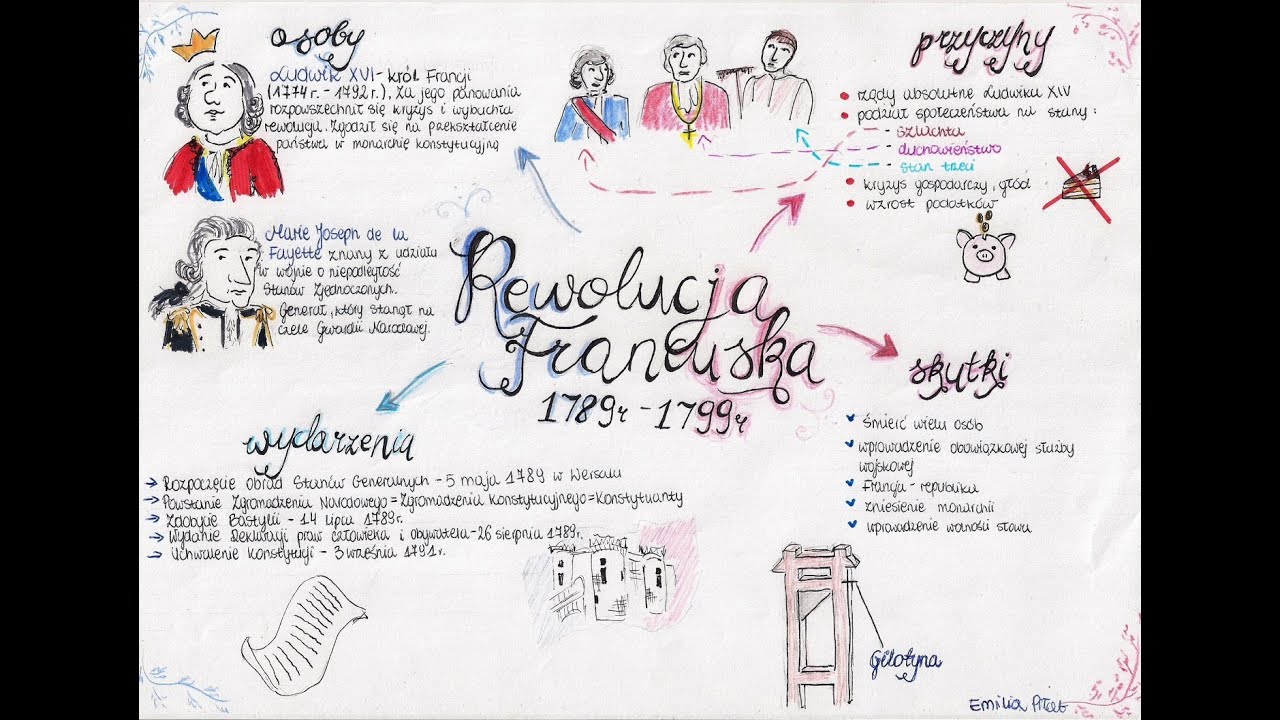 osoby
Ludwik XVI - król Francji
(1774 r. - 1792 r.). Za jego panowania
rozpowszechnił się kryzys i wybuchła
rewolucja. Zgodził się na przekształcenie
państwa w monarchię konstytucyjną
Marie Joseph de La
Fayette znany z udziału
w wojnie o niepodległość
Stanów Zjednoczonych.
Generał, który stanął na
czele Gwardii Narodowej.
przyczyny
rządy absolutne Ludwika XIV
podział społeczeństwa na stany:
- szlachta
- duchowieństwo
- stan trzeci
kryzys gospodarczy, głód
wzrost podatków
Rewolucja
Francuska
1789r - 1799r
skutki
śmierć wielu osób
wprowadzenie obowiązkowej służby
wojskowej
Francja - republika
zniesienie monarchii
wprowadzenie wolności słowa
wydarzenia
→ Rozpoczęcie obrad Stanów Generalnych - 5 maja 1789 w Wersalu
→ Powstanie Zgromadzenia Narodowego = Zgromadzenia Konstytucyjnego = Konstytuanty
→ Zdobycie Bastylii - 14 lipca 1789r.
→ Wydanie Deklaracji praw człowieka i obywatela - 26 sierpnia 1789r.
→ Uchwalenie Konstytucji - 3 września 1791r.
Gilotyna
Emilia